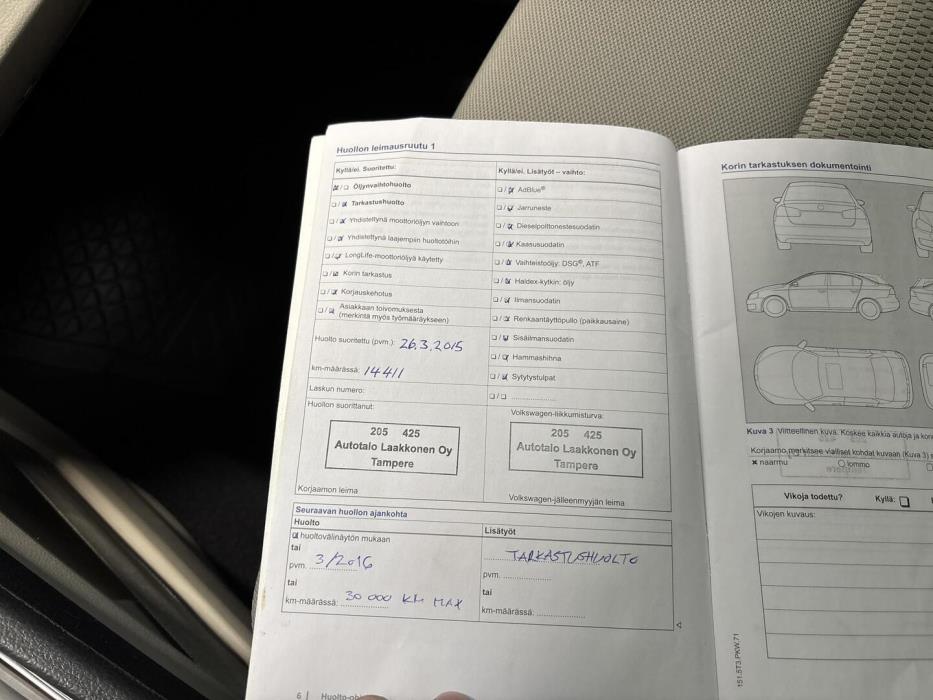 Huollon leimausruutu 1
Kyllä/ei. Suoritettu:
Öljynvaihtohuolto
Tarkastushuolto
Yhdistettynä moottoriöljyn vaihtoon
Yhdistettynä laajempiin huoltotöihin
LongLife-moottoriöljyä käytetty
Korin tarkastus
Korjauskehotus
Asiakkaan toivomuksesta
(merkintä myös työmääräykseen)
Huolto suoritettu (pvm.): 26.3.2015
km-määrässä: 14411
Laskun numero:
Huollon suorittanut:
205 425
Autotalo Laakkonen Oy
Tampere
Korjaamon leima
Kyllä/ei. Lisätyöt – vaihto:
AdBlue®
Jarruneste
Dieselpolttonestesuodatin
Kaasusuodatin
Vaihteistoöljy: DSG®, ATF
Haldex-kytkin: öljy
Ilmansuodatin
Renkaantäyttöpullo (paikkausaine)
Sisäilmansuodatin
Hammashihna
Sytytystulpat
Volkswagen-liikkumisturva:
205 425
Autotalo Laakkonen Oy
Tampere
Volkswagen-jälleenmyyjän leima
Seuraavan huollon ajankohta
Huolto
huoltovälinäytön mukaan
tai
pvm. 3/2016
tai
km-määrässä: 30 000 KM MAX
Lisätyöt
TARKASTUSHUOLTO
pvm.
tai
km-määrässä:
6 | Huolto-oh
Korin tarkastuksen dokumentointi
Kuva 3 Viitteellinen kuva. Koskee kaikkia autoja ja kori
Korjaamo merkitsee vialliset kohdat kuvaan (Kuva 3)
× naarmu O lommo
Vikoja todettu? Kyllä:
Vikojen kuvaus:
151.5T3.PKW.71